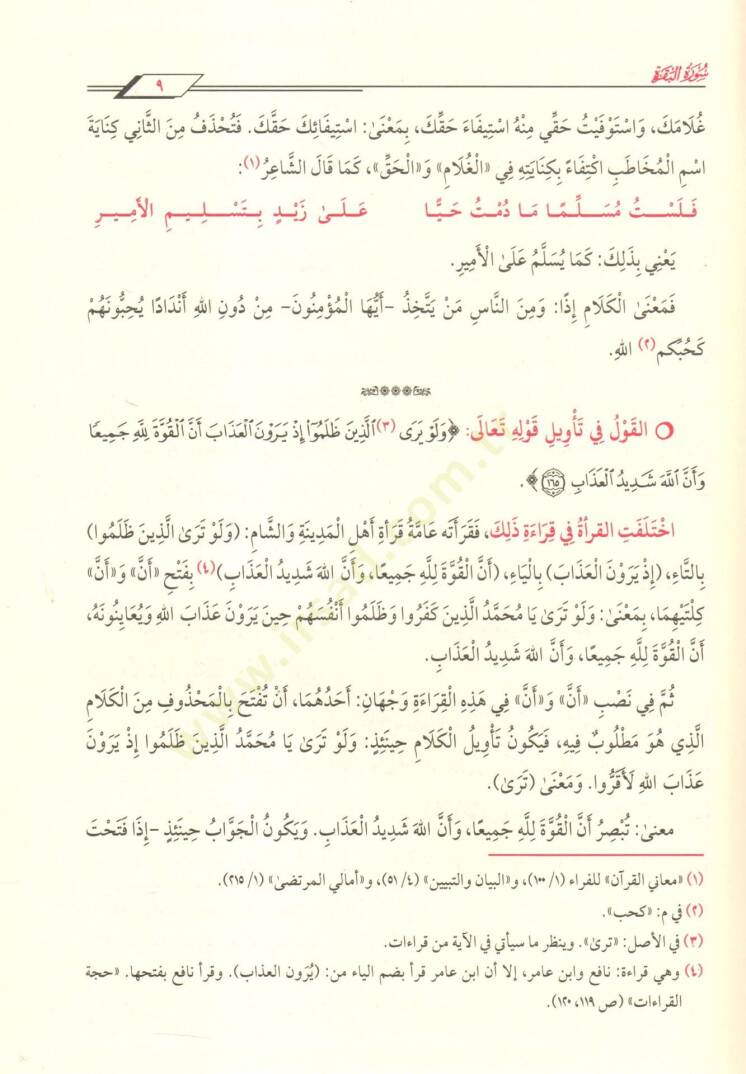 سُورَةُ البَقَرَة
٩
غُلَامَكَ، وَاسْتَوْفَيْتُ حَقِّي مِنْهُ اسْتِيفَاءَ حَقِّكَ، بِمَعْنَىٰ: اسْتِيفَائِكَ حَقَّكَ. فَتُحْذَفُ مِنَ الثَّانِي كِنَايَةَ
اسْمِ الْمُخَاطَبِ اكْتِفَاءً بِكِنَايَتِهِ فِي «الْغُلَامِ» وَ«الْحَقِّ»، كَمَا قَالَ الشَّاعِرُ(١):
فَلَسْتُ مُسَلِّمًا مَا دُمْتُ حَيًّا عَلَىٰ زَيْدٍ بِتَسْلِيمِ الأَمِيرِ
يَعْنِي بِذَلِكَ: كَمَا يُسَلَّمُ عَلَىٰ الْأَمِيرِ.
فَمَعْنَىٰ الْكَلَامِ إِذًا: وَمِنَ النَّاسِ مَنْ يَتَّخِذُ -أَيُّهَا الْمُؤْمِنُونَ- مِنْ دُونِ اللهِ أَنْدَادًا يُحِبُّونَهُمْ
كَحُبِّكم(٢) اللهِ.
القَوْلُ فِي تَأْوِيلِ قَوْلِهِ تَعَالَى: ﴿وَلَوْ يَرَى (٣)الَّذِينَ ظَلَمُوٓا۟ إِذْ يَرَوْنَ الْعَذَابَ أَنَّ الْقُوَّةَ لِلَّهِ جَمِيعًا
وَأَنَّ اللَّهَ شَدِيدُ الْعَذَابِ ١٦٥﴾.
اخْتَلَفَتِ القرأةُ فِي قِرَاءَةِ ذَلِكَ، فَقَرَأَته عَامَّةُ قَرَأةِ أَهْلِ الْمَدِينَةِ وَالشَّامِ: (وَلَوْ تَرَىٰ الَّذِينَ ظَلَمُوا)
بِالتَّاءِ، (إِذْ يَرَوْنَ الْعَذَابَ) بِالْيَاءِ، (أَنَّ الْقُوَّةَ لِلَّهِ جَمِيعًا، وَأَنَّ اللهَ شَدِيدُ الْعَذَابِ)(٤) بِفَتْحِ «أَنَّ» وَ«أَنَّ»
كِلْتَيْهِمَا، بِمَعْنَىٰ: وَلَوْ تَرَىٰ يَا مُحَمَّدُ الَّذِينَ كَفَرُوا وَظَلَمُوا أَنْفُسَهُمْ حِينَ يَرَوْنَ عَذَابَ اللهِ وَيُعَايِنُونَهُ،
أَنَّ الْقُوَّةَ لِلَّهِ جَمِيعًا، وَأَنَّ اللهَ شَدِيدُ الْعَذَابِ.
ثُمَّ فِي نَصْبِ «أَنَّ» وَ«أَنَّ» فِي هَذِهِ الْقِرَاءَةِ وَجْهَانِ: أَحَدُهُمَا، أَنْ تُفْتَحَ بِالْمَحْذُوفِ مِنَ الْكَلَامِ
الَّذِي هُوَ مَطْلُوبٌ فِيهِ، فَيَكُونُ تَأْوِيلُ الْكَلَامِ حِينَئِذٍ: وَلَوْ تَرَىٰ يَا مُحَمَّدُ الَّذِينَ ظَلَمُوا إِذْ يَرَوْنَ
عَذَابَ اللهِ لَأَقَرُّوا. وَمَعْنَىٰ (تَرَىٰ).
معنىٰ: تُبْصِرُ أَنَّ الْقُوَّةَ لِلَّهِ جَمِيعًا، وَأَنَّ اللهَ شَدِيدُ الْعَذَابِ. وَيَكُونُ الْجَوَّابُ حِينَئِذٍ -إِذَا فَتَحْتَ
(١) «معاني القرآن» للفراء (١/ ١٠٠)، و«البيان والتبيين» (٤/ ٥١)، و«أمالي المرتضىٰ» (١/ ٢١٥).
(٢) في م: «كحب».
(٣) في الأصل: «ترىٰ». وينظر ما سيأتي في الآية من قراءات.
(٤) وهي قراءة: نافع وابن عامر، إلا أن ابن عامر قرأ بضم الياء من: (يُرَون العذاب). وقرأ نافع بفتحها. «حجة
القراءات» (ص ١١٩، ١٢٠).